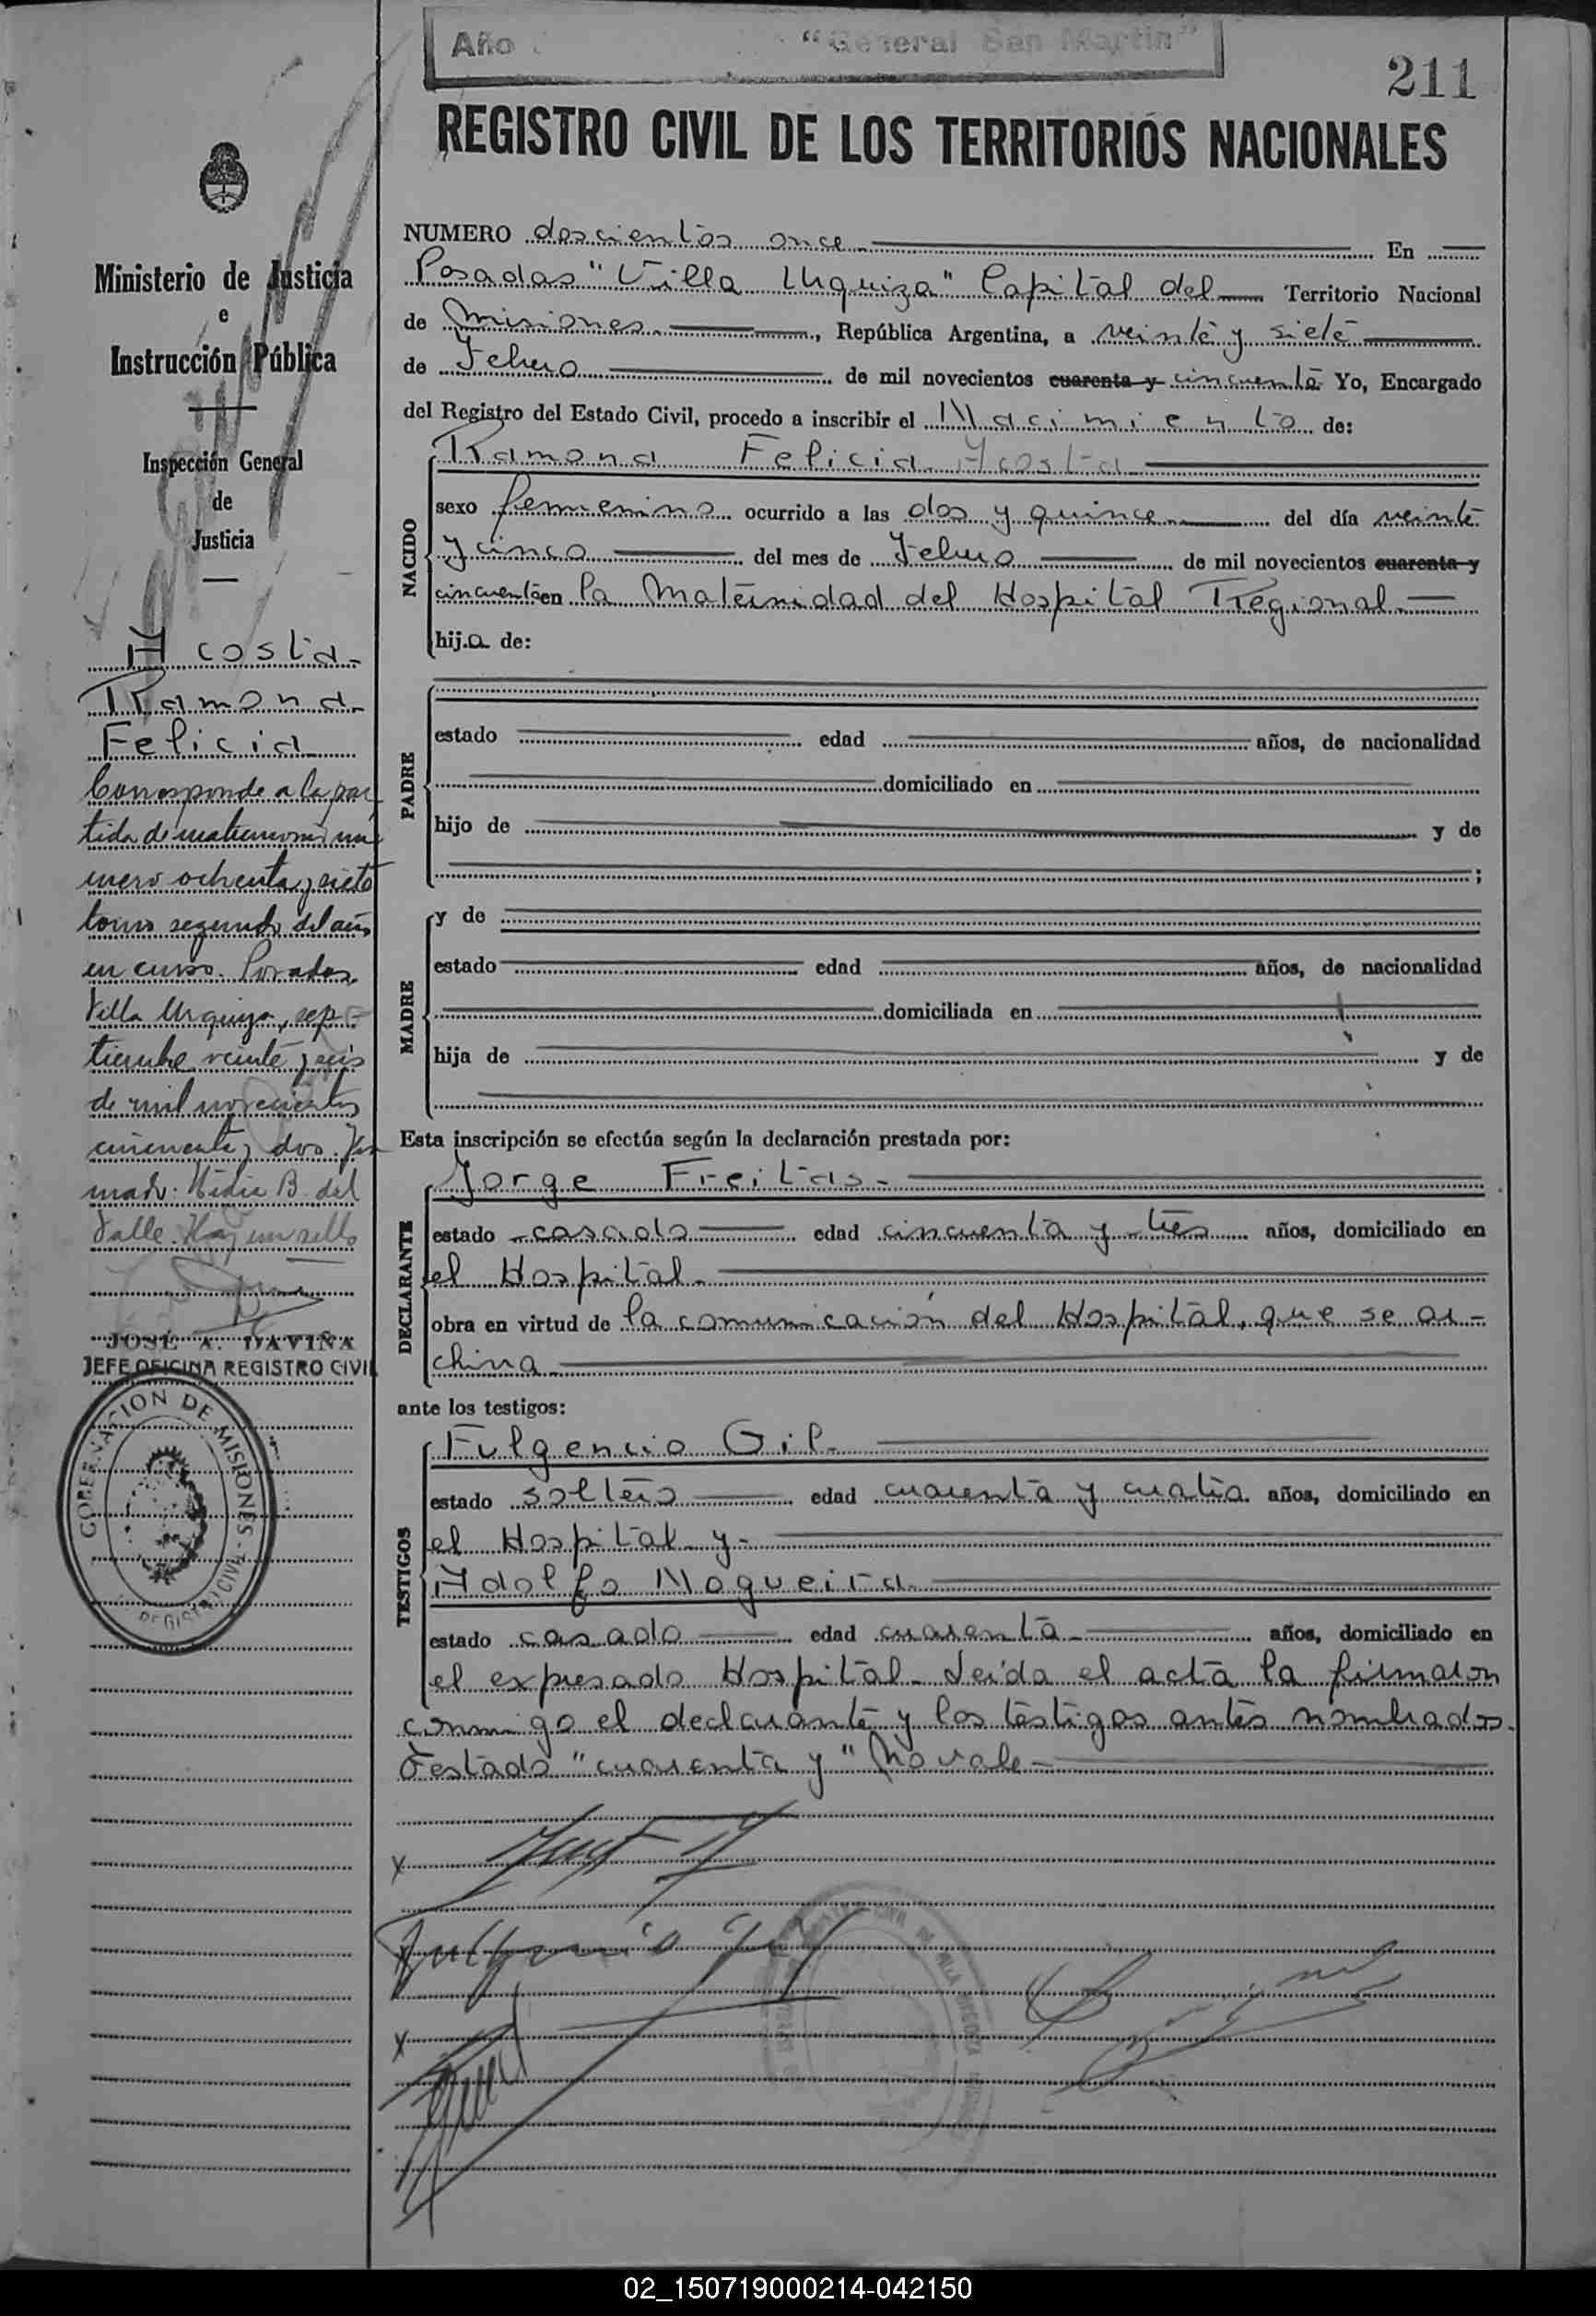 Año "General San Martin"
211
REGISTRO CIVIL DE LOS TERRITORIOS NACIONALES
Ministerio de Justicia
e
Instrucción Pública
Inspección General
de
Justicia
Acosta-
Ramona-
Felicia
Corresponde a la par
tida de matrimonio nú
mero ochenta y siete
tomo segundo del año
en curso. Posadas,
Villa Urquiza, sep-
tiembre veinte y seis
de mil novecientos
cincuenta y dos. Fir
mado: B. del
Valle. Hay un sello
JOSÉ A. DAVIÑA
JEFE OFICINA REGISTRO CIVIL
GOBERNACION DE MISIONES - REGISTRO CIVIL
NUMERO doscientos once En
Posadas "Villa Urquiza" Capital del Territorio Nacional
de Misiones, República Argentina, a veinte y siete
de Febrero de mil novecientos cuarenta y cincuenta Yo, Encargado
del Registro del Estado Civil, procedo a inscribir el Nacimiento de:
NACIDO
Ramona Felicia Acosta
sexo femenino ocurrido a las dos y quince del día veinte
y cinco del mes de Febrero de mil novecientos cuarenta y
cincuenta en la Maternidad del Hospital Regional.
hij.a de:
PADRE
estado edad años, de nacionalidad
domiciliado en
hijo de y de
;
MADRE
y de
estado edad años, de nacionalidad
domiciliada en
hija de y de
Esta inscripción se efectúa según la declaración prestada por:
DECLARANTE
Jorge Freitas-
estado casado edad cincuenta y tres años, domiciliado en
el Hospital-
obra en virtud de la comunicación del Hospital, que se ar-
chiva
ante los testigos:
TESTIGOS
Fulgencio Gil-
estado soltero edad cuarenta y cuatro años, domiciliado en
el Hospital y-
Adolfo Nogueira
estado casado edad cuarenta- años, domiciliado en
el expresado Hospital- Leida el acta la firmaron
conmigo el declarante y los testigos antes nombrados.
Testado "cuarenta y" No vale-
x
Fulgencio Gil
x
02_150719000214-042150